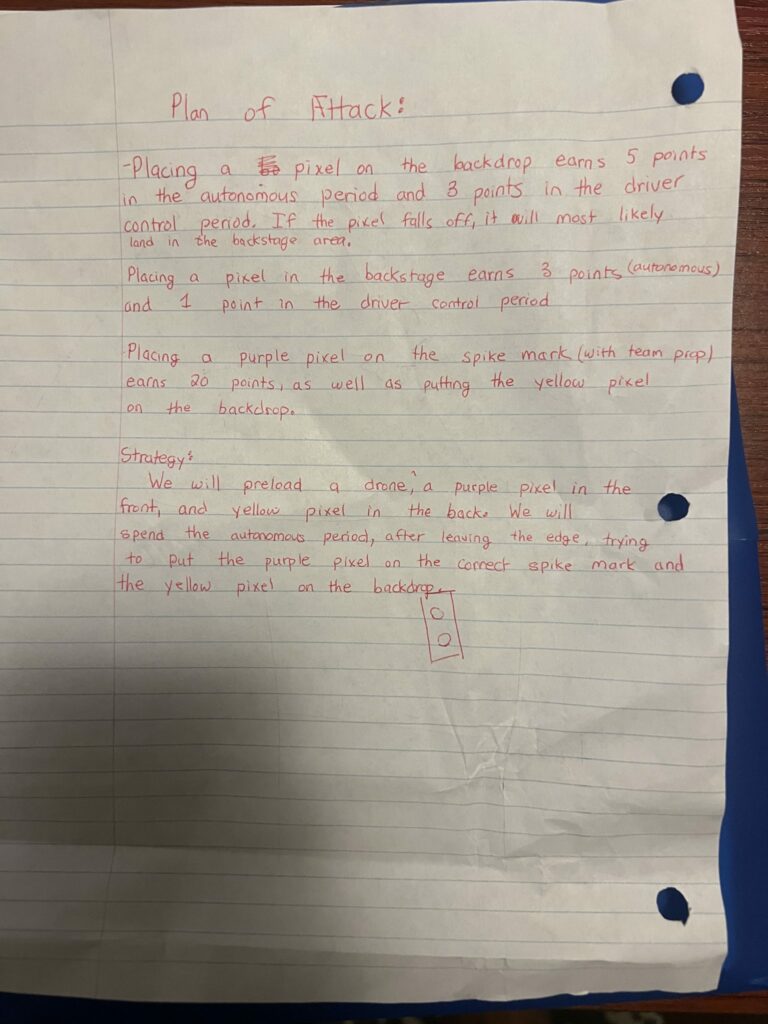 Plan of Attack:
-Placing a pixel on the backdrop earns 5 points
in the autonomous period and 3 points in the driver
control period. If the pixel falls off, it will most likely
land in the backstage area.
Placing a pixel in the backstage earns 3 points (autonomous)
and 1 point in the driver control period
Placing a purple pixel on the spike mark (with team prop)
earns 20 points, as well as putting the yellow pixel
on the backdrop.
Strategy:
We will preload a drone, a purple pixel in the
front, and yellow pixel in the back. We will
spend the autonomous period, after leaving the edge, trying
to put the purple pixel on the correct spike mark and
the yellow pixel on the backdrop.